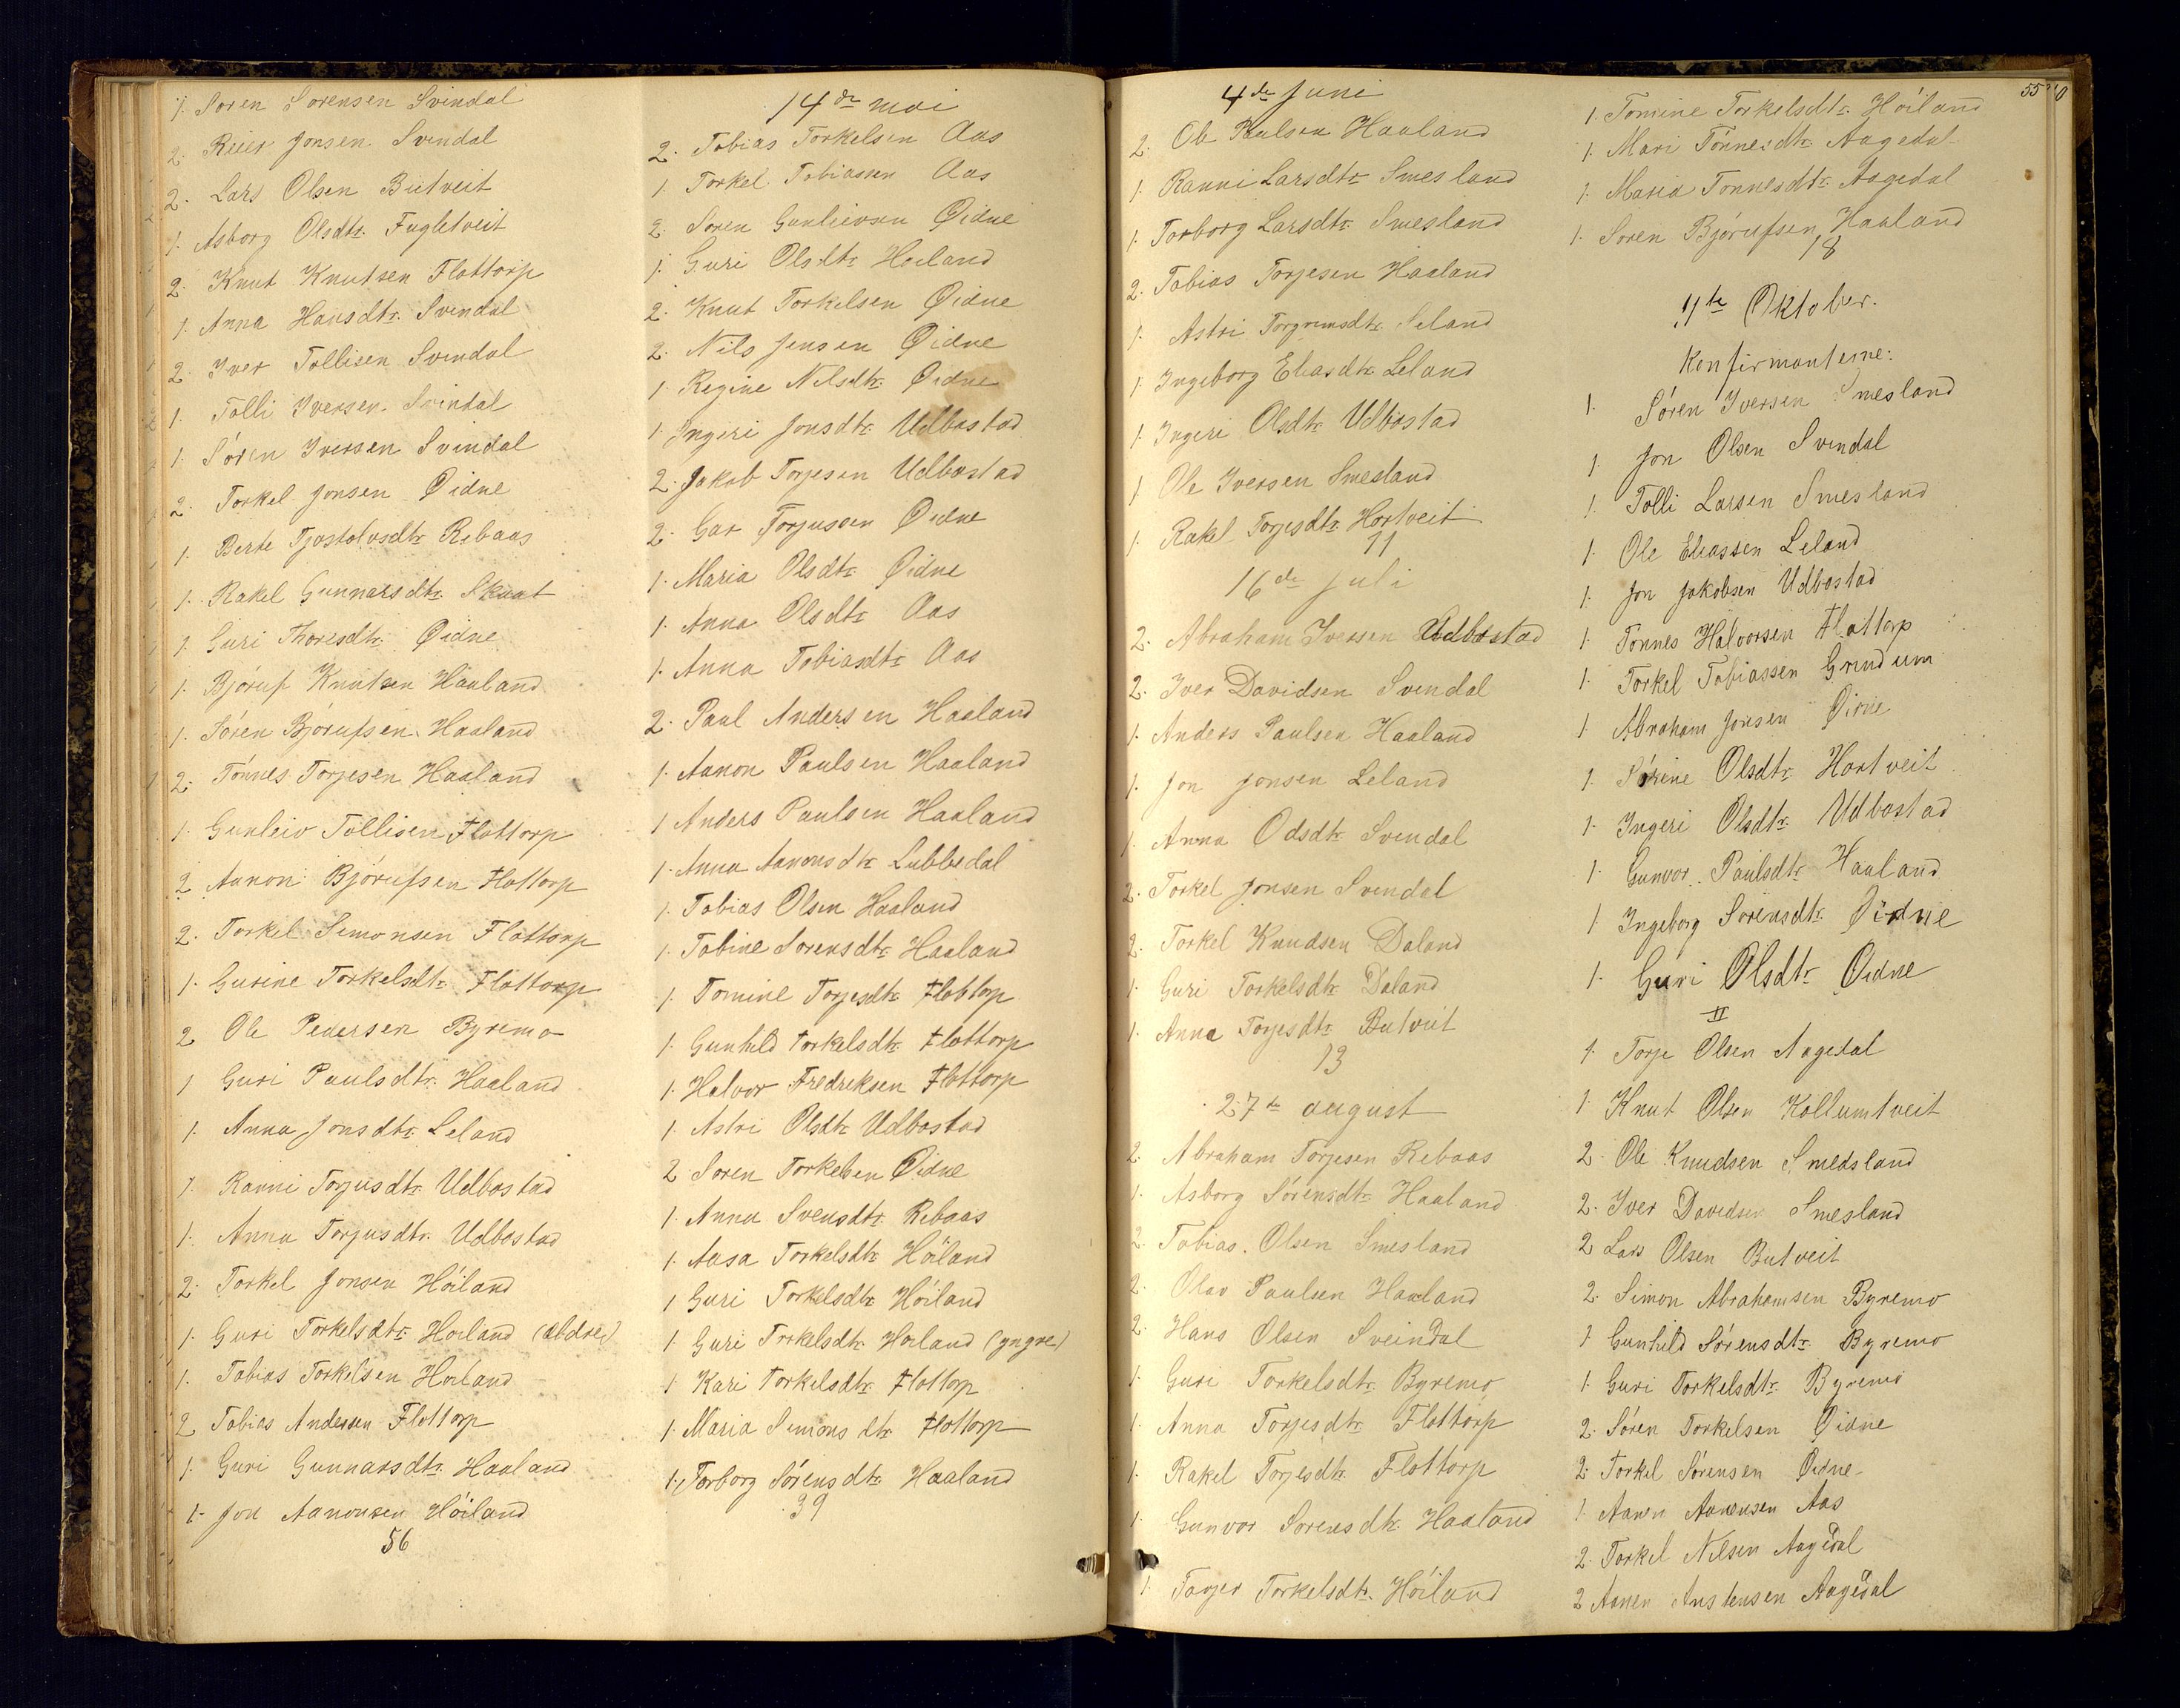 1. Soren Sorensen Svindal
2. Reier Jonsen Svindal
2. Lars Olsen Butveit
1. Asborg Olsdtr. Fugletveit
2. Knut Knutsen Flottorp
1. Anna Hansdtr. Svindal
2. Iver Tollisen Svindal
1. Tolli Iversen Svindal
1. Sören Iversen Svindal
2. Torkel Jonsen Øidne
1. Berte Tjostolvsdtr Rebaas
1. Rakel Gunnarsdtr. Skuat
1. Guri Thoresdtr. Øidne
1. Björuf Knutsen Haaland
1. Sören Björufsen Haaland
2. Tönnes Torjesen Haaland
1. Gunleiv Tollisen Flottorp
2 Aanon Björufsen Flottorp
2. Torkel Simonsen Flottorp
1. Gurine Torkelsdtr. Flottorp
2 Ole Pedersen Byremo
1 Guri Paulsdtr. Haaland
1. Anna Jonsdtr. Leland
1. Ranni Torjusdtr. Udbostad
1. Anna Torjusdtr. Udbostad
2. Torkel Jonsen Höiland
1. Guri Torkelsdtr Hoiland (ældre)
1. Tobias Torkelsen Hoiland
2 Tobias Andersen Flottorp
1. Guri Gunnarsdtr. Haaland
1. Jon Aanonsen Höiland
56
14de mai
2. Tobias Torkelsen Aas
1. Torkel Tobiassen Aas
2. Soren Gunlievsen Øidne
1. Guri Olsdtr Hoiland
2. Knut Torkelsen Øidne
2. Nils Jensen Øidne
1. Regine Nilsdtr. Øidne
1. Ingiri Jonsdtr. Udbostad
2. Jakob Torjesen Udbostad
2. Gar Torjussen Øidne
1. Maria Olsdtr Øidne
1. Anna Olsdtr Aas
1. Anna Tobiasdtr Aas
2. Paul Andersen Haaland
1. Aanon Paulsen Haaland
1 Anders Paulsen Haaland
1. Anna Aanonsdtr Lubbedal
1. Tobias Olsen Haaland
1. Tobine Sorensdtr. Haaland
1. Tomine Torjesdtr Flottorp
1. Gunhild Torkelsdtr. Flottorp
1. Halvor Fredriksen Flottorp
1. Astri Olsdtr Udbostad
2 Soren Torkelsen Øidne
1. Anna Svensdtr. Rebaas
1. Aasa Torkelsdtr Höiland
1 Guri Torkelsdtr Höiland
1 Guri Torkelsdtr. Hoiland (yngre)
1 Kari Torkelsdtr. Flottorp
1. Maria Simonsdtr Flottorp
1. Torborg Sörensdtr. Haaland
39
55
4de Juni
2. Ole Paulsen Haaland
1. Ranni Larsdtr Smesland
1. Torborg Larsdtr Smesland
2. Tobias Torjesen Haaland
1. Astri Torgrimsdtr. Seland
1. Ingeborg Eliasdtr Leland
1. Ingeri Olsdtr Udbostad
1 Ole Iversen Smesland
1. Rakel Torjesdtr Hortveit
11
16de Juli
2. Abraham Iversen Udbostad
2. Iver Davidsen Svendal
1. Anders Paulsen Haaland
1. Jon Jonsen Leland
1. Anna Odsdtr Svendal
2. Torkel Jonsen Svendal
2. Torkel Knudsen Daland
1 Guri Torkelsdtr Daland
1. Anna Torjesdtr. Butveit
13
27de august
2. Abraham Torjesen Rebaas
1. Asborg Sörensdtr. Haaland
2. Tobias Olsen Smesland
2. Olav Paulsen Haaland
2. Hans Olsen Sveindal
1. Guri Torkelsdtr. Byremo
1. Anna Torjesdtr. Flottorp
1. Rakel Torjesdtr. Flottorp
1. Gunvor Sorensdtr. Haaland
1. Torjer Torkelsdtr. Höiland
1. Tomine Torkelsdtr. Höiland
1. Mari Tönnesdtr. Aagedal
1. Maria Tönnesdtr. Aagedal
1. Soren Björufsen Haaland
18
11te Oktober.
Konfirmanterne:
1. Sören Iversen Smesland
1. Jon Olsen Svendal
1. Tolli Larsen Smesland
1. Ole Eliassen Leland
1. Jon Jakobsen Udbostad
1 Tonnes Halvorsen Flottorp
1. Torkel Tobiassen Grindum
1 Abraham Jonsen Øidne
1. Sörine Olsdtr. Hortveit
1. Ingeri Olsdtr. Udbostad
1. Gunvor Paulsdtr Haaland
1 Ingeborg Sorensdtr. Øidne
1. Guri Olsdtr Øidne
II
1 Torje Olsen Aagedal
1 Knut Olsen Kollumtveit
2. Ole Knudsen Smedsland
2. Iver Davidsen Smesland
2 Lars Olsen Butveit
2. Simon Abrahamsen Byremo
1 Gunhild Sörensdtr. Byremo
1 Guri Torkelsdtr. Byremo
2. Sören Torkelsen Øidne
2. Torkel Sörensen Øidne
1. Aanon Aanensen Aas
2. Torkel Nilsen Aagedal
2 Aanen Austensen Aagedal